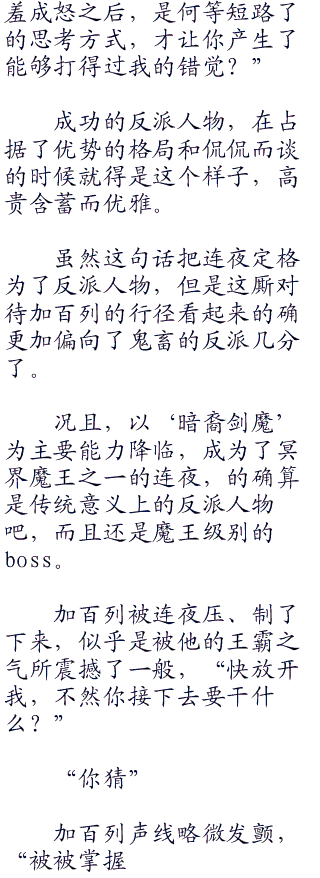 羞成怒之后，是何等短路了
的思考方式，才让你产生了
能够打得过我的错觉？”
成功的反派人物，在占
据了优势的格局和侃侃而谈
的时候就得是这个样子，高
贵含蓄而优雅。
虽然这句话把连夜定格
为了反派人物，但是这厮对
待加百列的行径看起来的确
更加偏向了鬼畜的反派几分
了。
况且，以‘暗裔剑魔’
为主要能力降临，成为了冥
界魔王之一的连夜，的确算
是传统意义上的反派人物
吧，而且还是魔王级别的
boss。
加百列被连夜压、制了
下来，似乎是被他的王霸之
气所震撼了一般，“快放开
我，不然你接下去要干什
么？”
“你猜”
加百列声线略微发颤，
“被被掌握